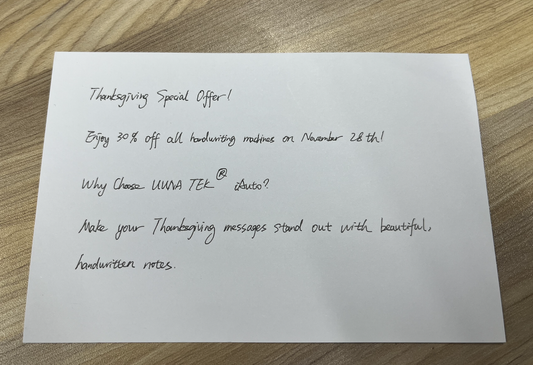 Thanksgiving Special Offer!
Enjoy 30% off all handwriting machines on November 28th!
Why Choose UUNA TEK® iAuto?
Make your Thanksgiving messages stand out with beautiful,
handwritten notes.